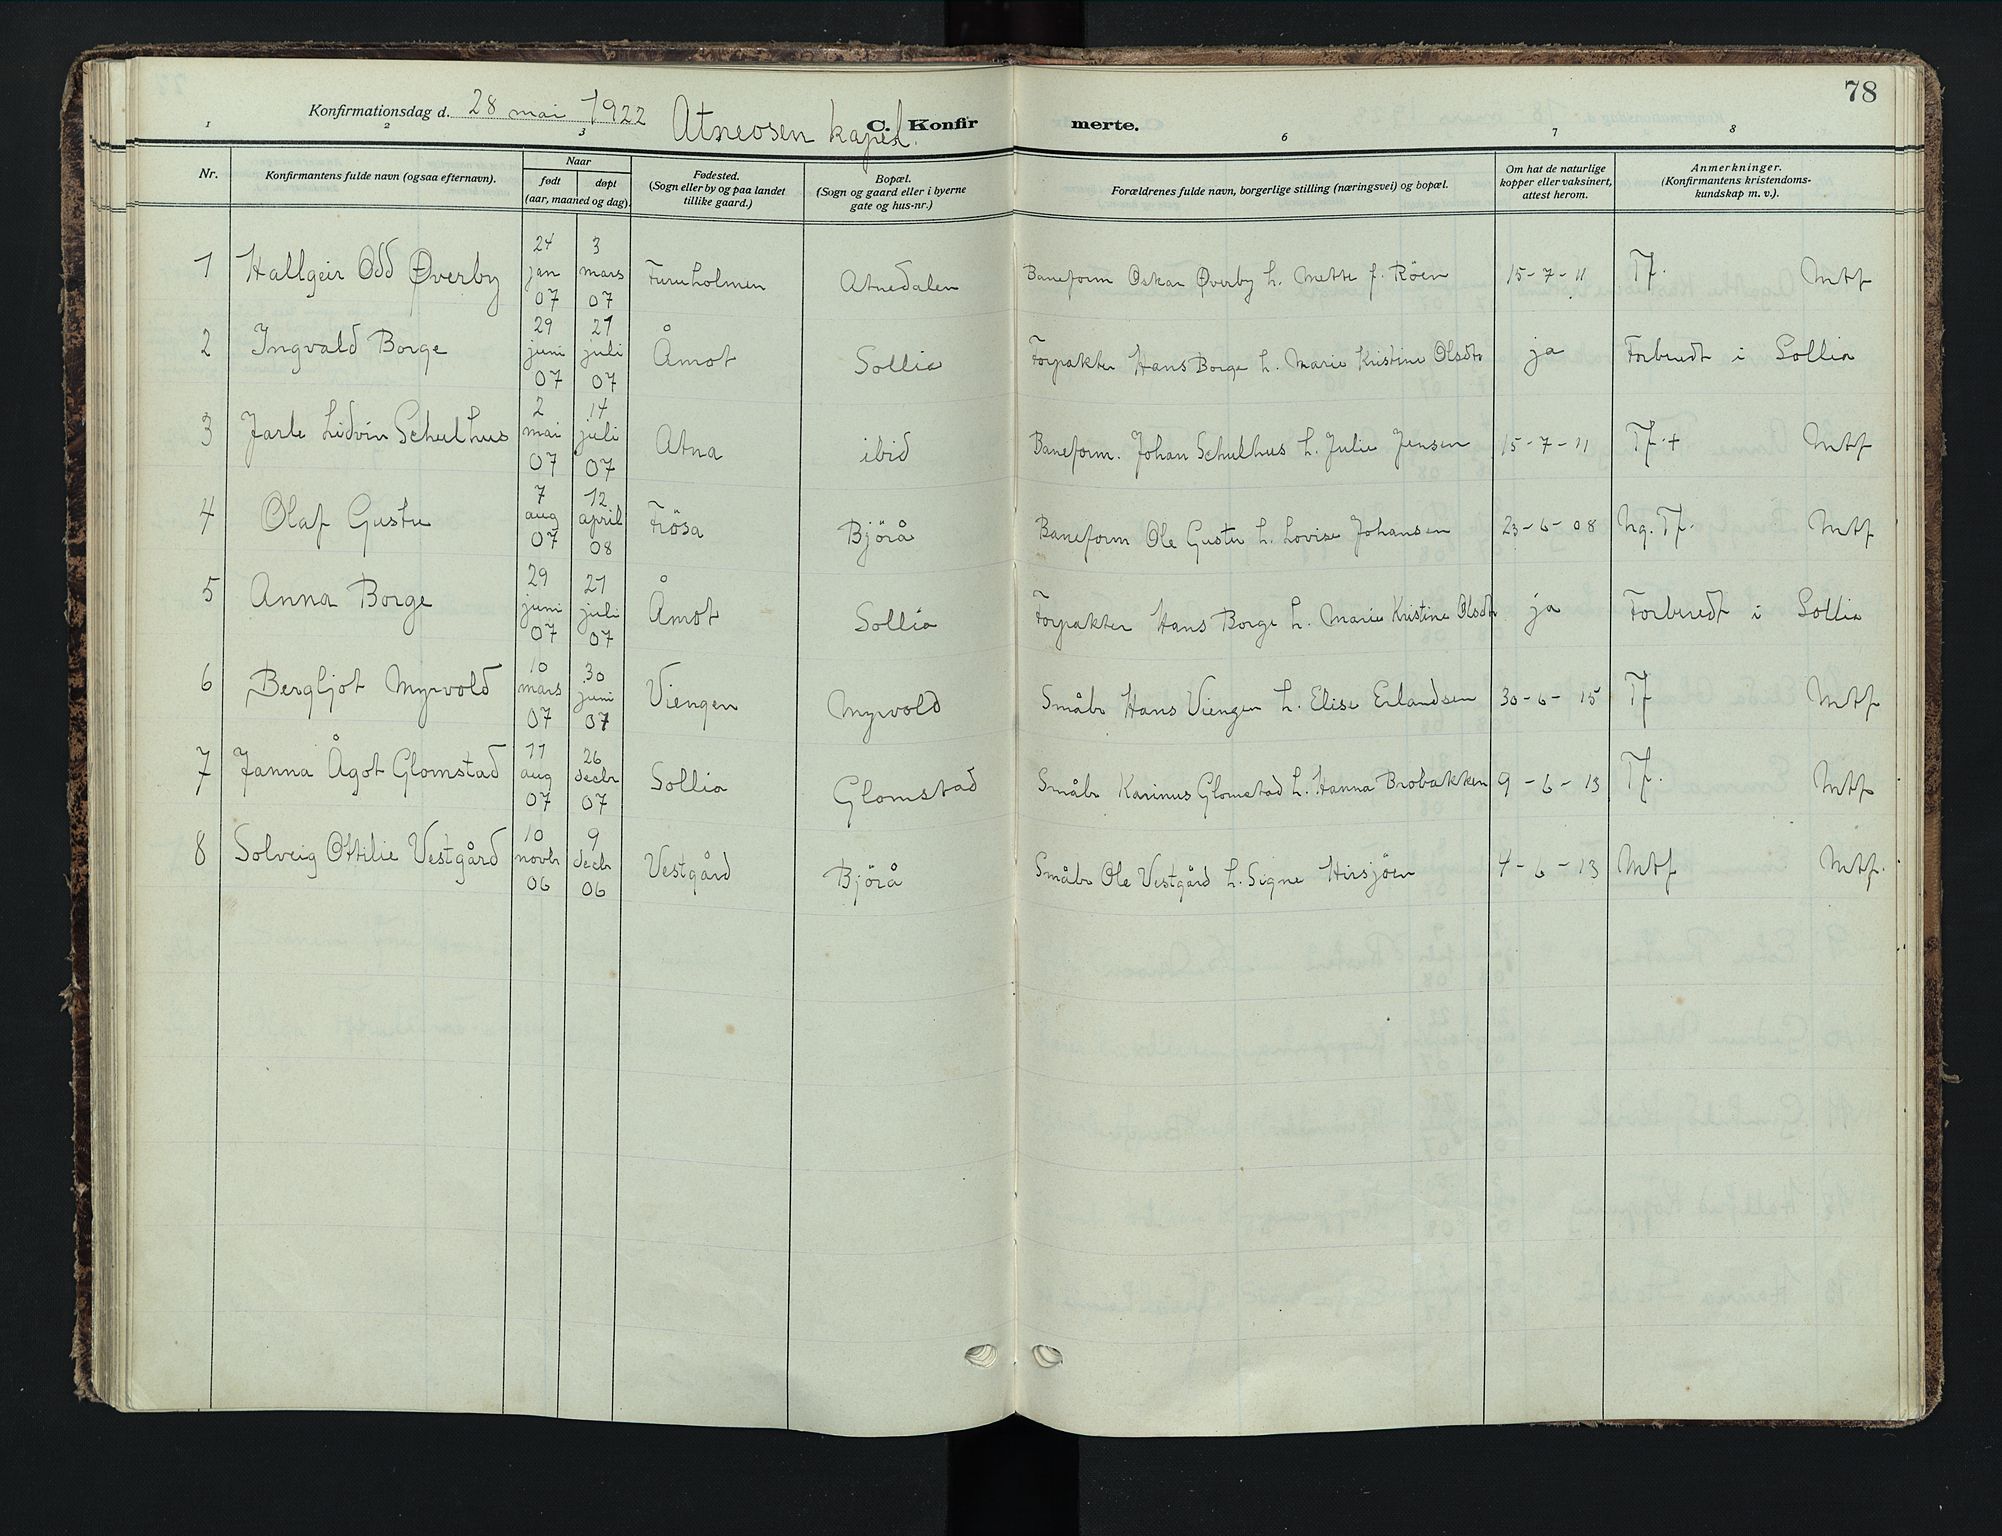 78
Konfirmationsdag d. 28 mai 1922 Atneosen kapel.
C. Konfirmerte.
1 2 3 6 7 8
Nr. Konfirmantens fulde navn (ogsaa efternavn). Naar født døpt (aar, maaned og dag). Fødested. (Sogn eller by og paa landet tillike gaard.) Bopæl. (Sogn og gaard eller i byerne gate og hus-nr.) Forældrenes fulde navn, borgerlige stilling (næringsvei) og bopæl. Om hat de naturlige kopper eller vaksinert, attest herom. Anmerkninger. (Konfirmantens kristendomskundskap m. v.).
1 Hallgeir Odd Øverby 24 jan 07 3 mars 07 Furuholmen Atnedalen Baneform Oskar Øverby h. Mette f. Röen 15-7-11 Tf. Mtf
2 Ingvald Borge 29 juni 07 27 juli 07 Åmot Sollia Forpakter Hans Borge h. Marie Kristine Olsdtr ja Forberedt i Sollia
3 Jarle Lidvin Schulhus 2 mai 07 14 juli 07 Atna ibid Baneform. Johan Schulhus h. Julie Jensen 15-7-11 Tf.+ Mtf
4 Olaf Gustu 7 aug 07 12 april 08 Frösa Björå Baneform Ole Gustu h. Lovise Johansen 23-6-08 Ng. Tf. Mtf
5 Anna Borge 29 juni 07 27 juli 07 Åmot Sollia Forpakter Hans Borge h. Marie Kristine Olsdtr ja Forberedt i Sollia
6 Bergljot Myrvold 10 mars 07 30 juni 07 Viengen Myrvold Småbr Hans Viengen h. Elise Erlandsen 30-6-15 Tf Mtf
7 Janna Ågot Glomstad 11 aug 07 26 decbr 07 Sollia Glomstad Småbr Karinus Glomstad h. Hanna Brobakken 9-6-13 Tf. Mtf
8 Solveig Ottilie Vestgård 10 novbr 06 9 decbr 06 Vestgård Björå Småbr Ole Vestgård h. Signe Hirsjöen 4-6-13 Mtf Mtf.